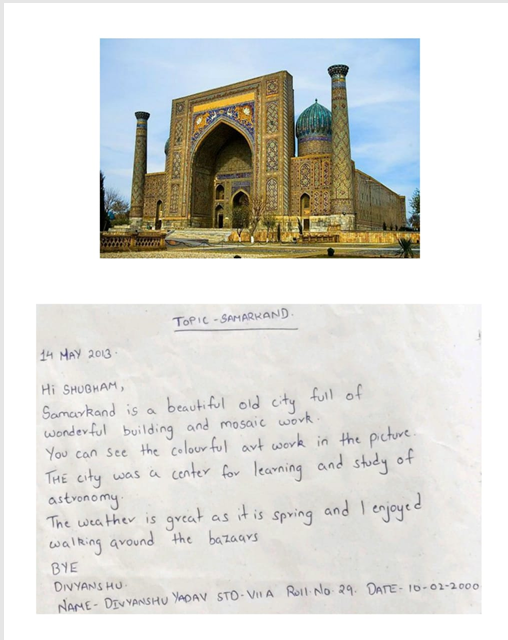 TOPIC - SAMARKAND.
14 MAY 2013.
Hi SHUBHAM,
Samarkand is a beautiful old city full of
wonderful building and mosaic work.
You can see the colourful art work in the picture.
THE city was a center for learning and study of
astronomy.
The weather is great as it is spring and I enjoyed
walking around the bazaars
BYE
DIVYANSHU.
NAME- DIVYANSHU YADAV STD- VII A Roll. No. 29. DATE- 10-02-2000